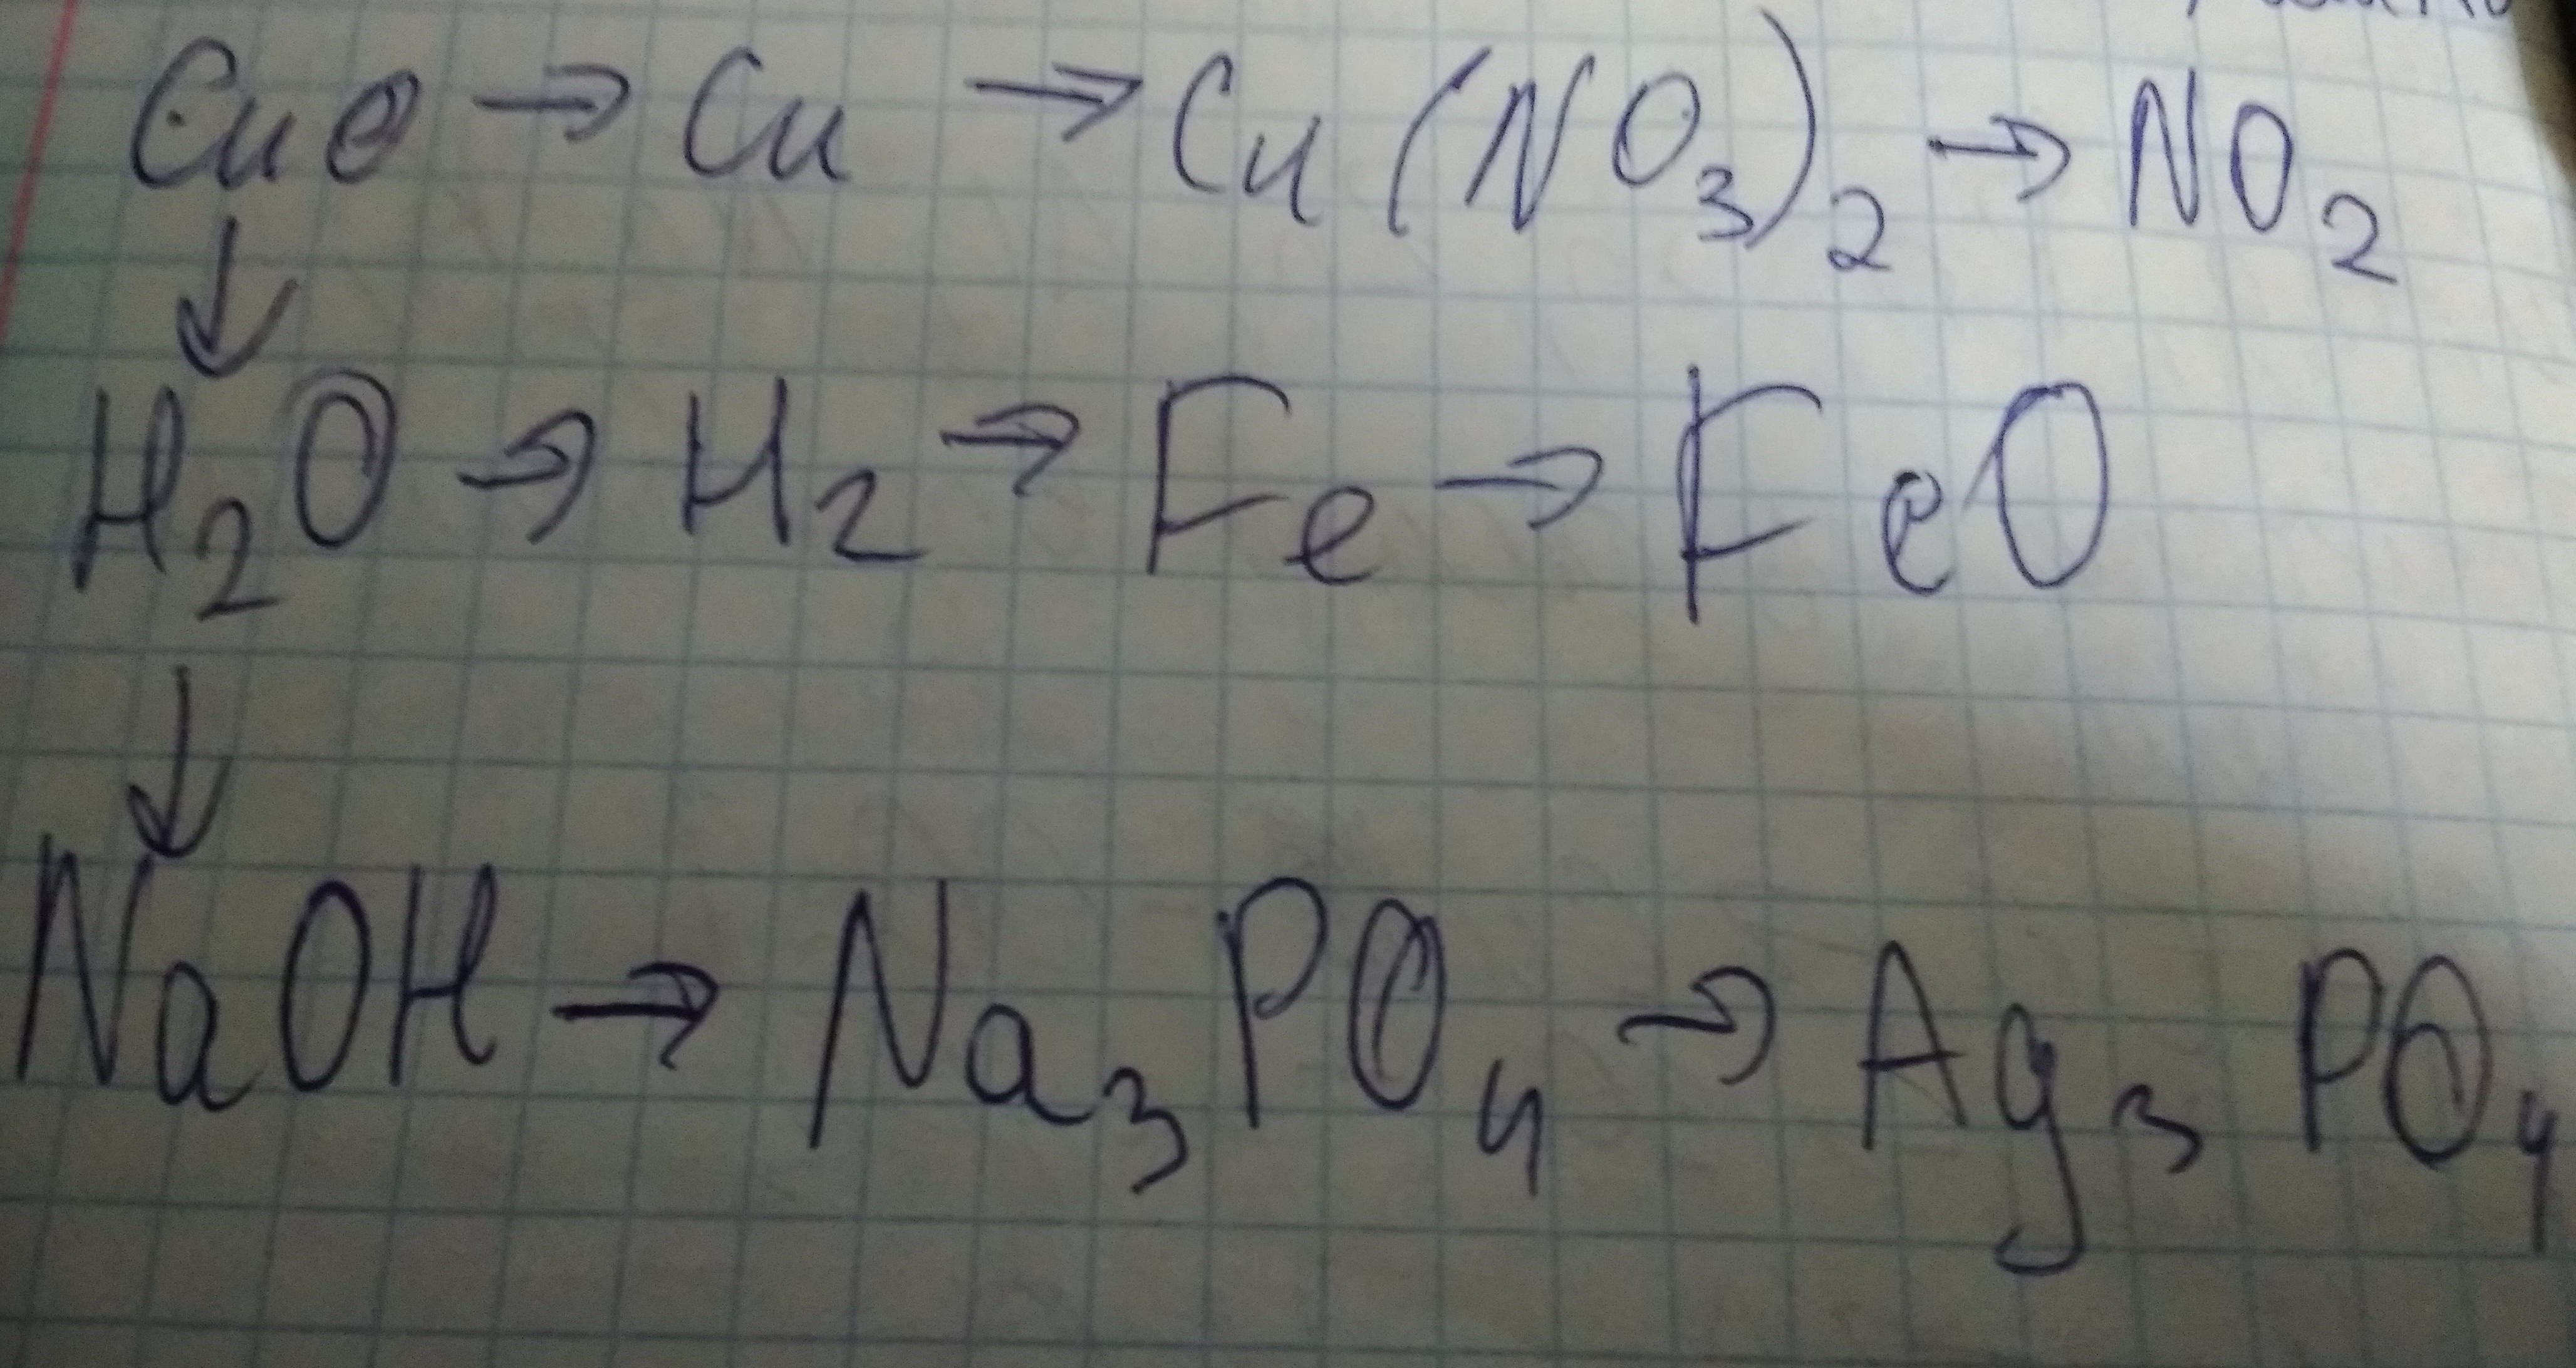 CuO → Cu → Cu(NO₃)₂ → NO₂
↓
H₂O → H₂ → Fe → FeO
↓
NaOH → Na₃PO₄ → Ag₃PO₄